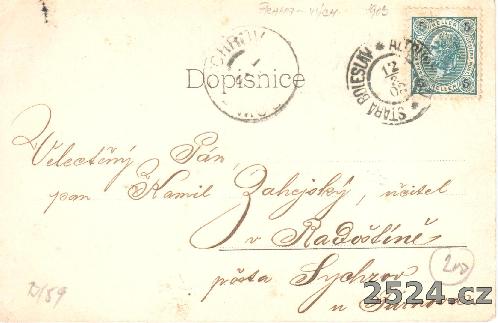 1903
STARÁ BOLESLAV * ALT
12
03
Dopisnice
Velectěný Pán,
pan Kamil Zahejský, učitel
v Radoštíně
pošta Sychrov
u Turnova
12/59
2524.cz